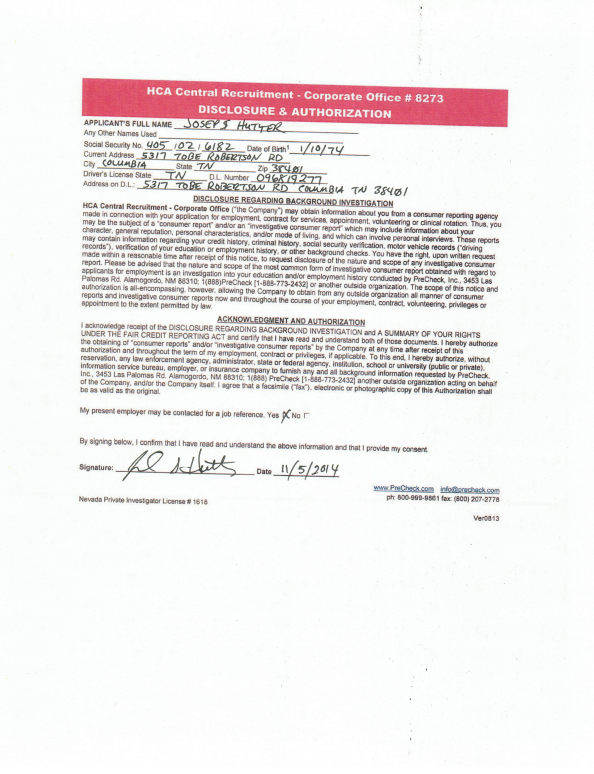 HCA Central Recruitment - Corporate Office # 8273
DISCLOSURE & AUTHORIZATION
APPLICANT'S FULL NAME JOSEPH HUTTER
Any Other Names Used
Social Security No. 405 / 02 / 6182 Date of Birth¹ 1/10/74
Current Address 5317 TOBE ROBERTSON RD
City COLUMBIA State TN Zip 38401
Driver's License State TN D.L. Number 096819277
Address on D.L.: 5317 TOBE ROBERTSON RD COLUMBIA TN 38401
DISCLOSURE REGARDING BACKGROUND INVESTIGATION
HCA Central Recruitment - Corporate Office ("the Company") may obtain information about you from a consumer reporting agency
made in connection with your application for employment, contract for services, appointment, volunteering or clinical rotation. Thus, you
may be the subject of a "consumer report" and/or an "investigative consumer report" which may include information about your
character, general reputation, personal characteristics, and/or mode of living, and which can involve personal interviews. These reports
may contain information regarding your credit history, criminal history, social security verification, motor vehicle records ("driving
records"), verification of your education or employment history, or other background checks. You have the right, upon written request
made within a reasonable time after receipt of this notice, to request disclosure of the nature and scope of any investigative consumer
report. Please be advised that the nature and scope of the most common form of investigative consumer report obtained with regard to
applicants for employment is an investigation into your education and/or employment history conducted by PreCheck, Inc., 3453 Las
Palomas Rd. Alamogordo, NM 88310; 1(888)PreCheck [1-888-773-2432] or another outside organization. The scope of this notice and
authorization is all-encompassing, however, allowing the Company to obtain from any outside organization all manner of consumer
reports and investigative consumer reports now and throughout the course of your employment, contract, volunteering, privileges or
appointment to the extent permitted by law.
ACKNOWLEDGMENT AND AUTHORIZATION
I acknowledge receipt of the DISCLOSURE REGARDING BACKGROUND INVESTIGATION and A SUMMARY OF YOUR RIGHTS
UNDER THE FAIR CREDIT REPORTING ACT and certify that I have read and understand both of those documents. I hereby authorize
the obtaining of "consumer reports" and/or "investigative consumer reports" by the Company at any time after receipt of this
authorization and throughout the term of my employment, contract or privileges, if applicable. To this end, I hereby authorize, without
reservation, any law enforcement agency, administrator, state or federal agency, institution, school or university (public or private),
information service bureau, employer, or insurance company to furnish any and all background information requested by PreCheck,
Inc., 3453 Las Palomas Rd. Alamogordo, NM 88310; 1(888) PreCheck [1-888-773-2432] another outside organization acting on behalf
of the Company, and/or the Company itself. I agree that a facsimile ("fax"), electronic or photographic copy of this Authorization shall
be as valid as the original.
My present employer may be contacted for a job reference. Yes X No
By signing below, I confirm that I have read and understand the above information and that I provide my consent.
Signature: Date 11/5/2014
www.PreCheck.com info@precheck.com
Nevada Private Investigator License # 1618 ph: 800-999-9861 fax: (800) 207-2778
Ver0813